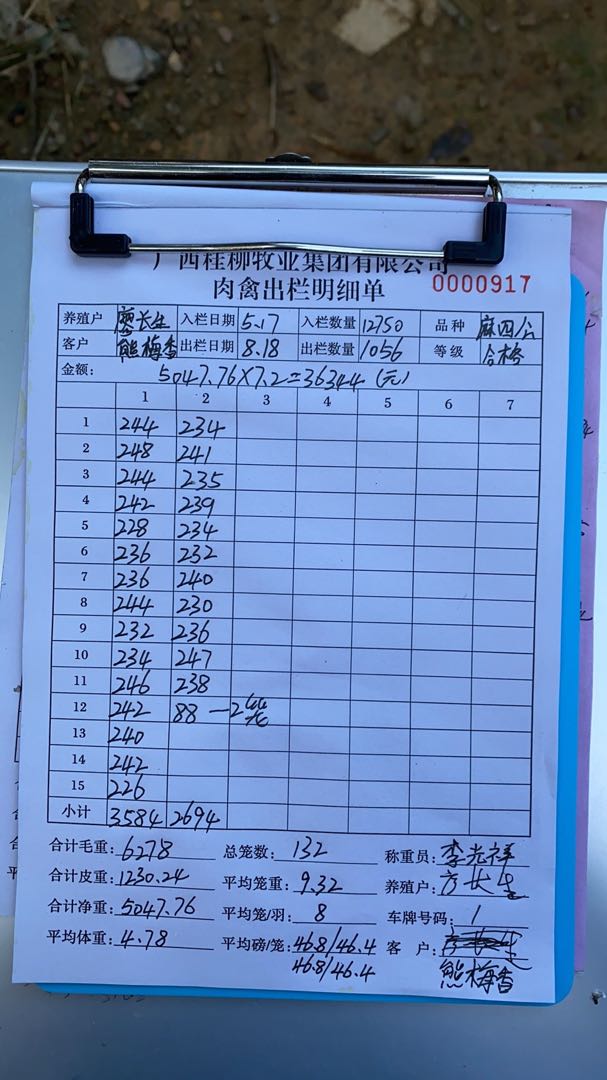 广西桂柳牧业集团有限公司
肉禽出栏明细单 0000917
养殖户 廖长生 入栏日期 5.17 入栏数量 12750 品种 麻四公
客户 熊梅香 出栏日期 8.18 出栏数量 1056 等级 合格
金额: 5047.76×7.2=36344(元)
1 2 3 4 5 6 7
1 244 234
2 248 241
3 244 235
4 242 239
5 228 234
6 236 232
7 236 240
8 244 230
9 232 236
10 234 247
11 246 238
12 242 88 —2笼
13 240
14 242
15 226
小计 3584 2694
合计毛重: 6278 总笼数: 132 称重员: 李光祥
合计皮重: 1230.24 平均笼重: 9.32 养殖户: 长生
合计净重: 5047.76 平均笼/羽: 8 车牌号码: 1
平均体重: 4.78 平均磅/笼: 46.8/46.4 客户:
46.8/46.4 熊梅香